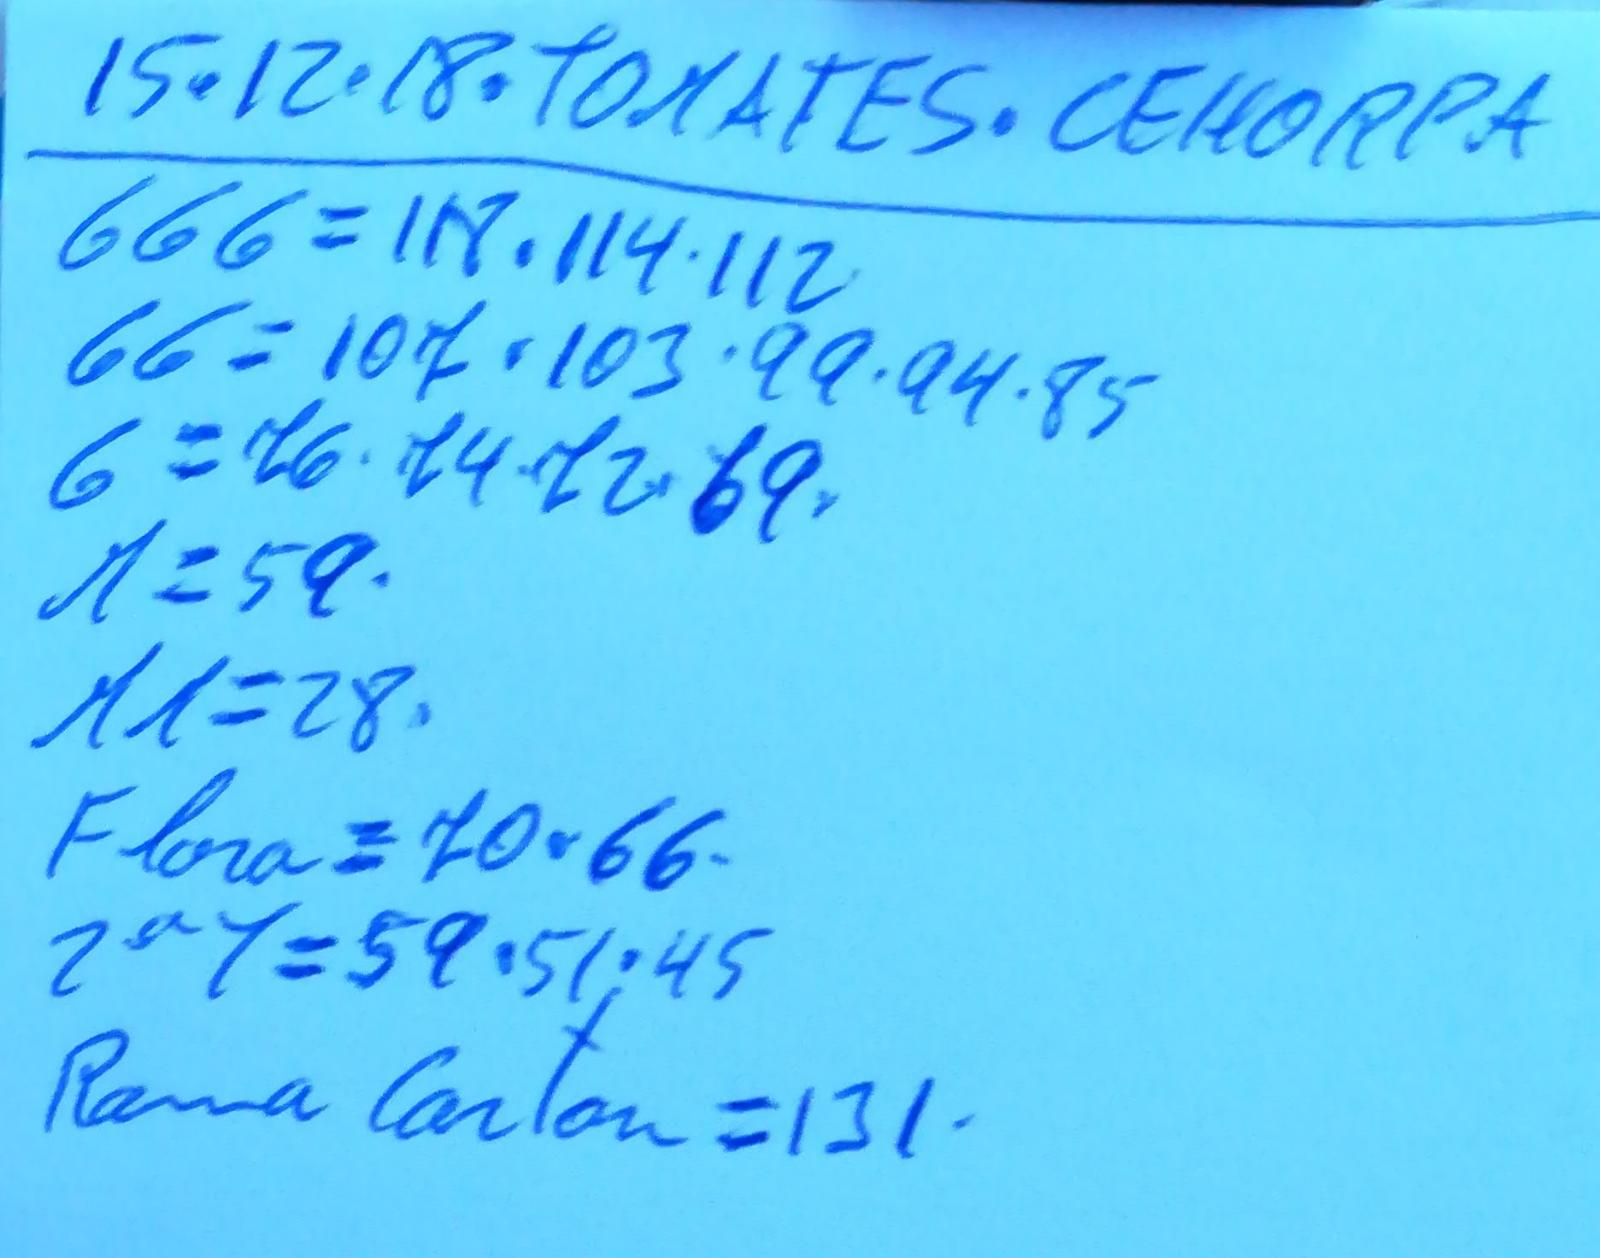 15.12.18. TOMATES. CEHORPA
666=118.114.112
66=107.103.99.94.85
6=76.74.72.69.
M=59.
MM=28.
Flora=70.66.
2ªY=59.51.45
Rama Cartón=131.